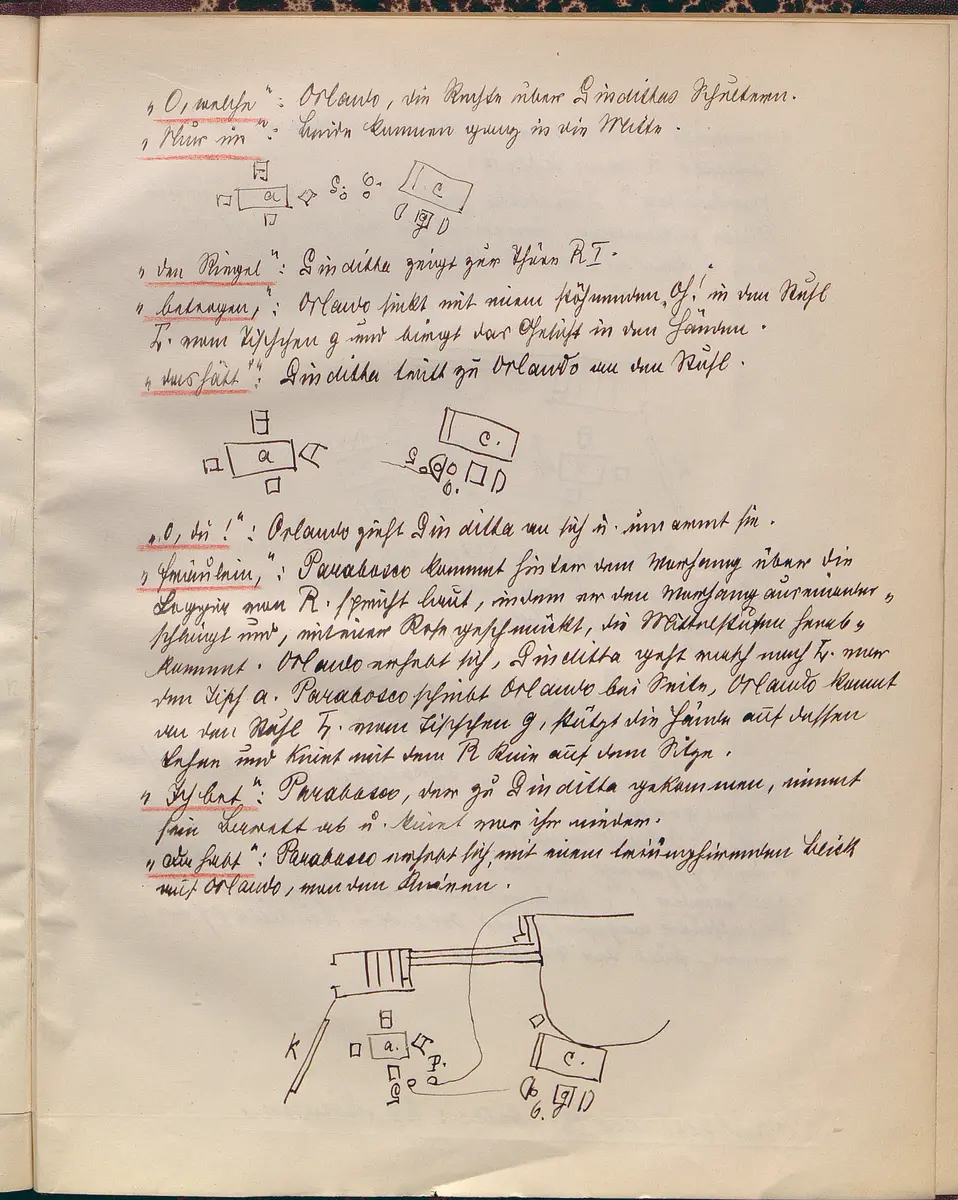 „O, welche“: Orlando, die Rechte über Gindittas Schultern.
„Nur im“: beide kommen ganz in die Mitte.
a G. O. c
g
„den Riegel“: Ginditta zeigt zur Thüre R I.
„betrogen,“: Orlando sinkt mit einem stöhnenden „Oh!“ in den Stuhl
L. vom Tischchen g und birgt das Gesicht in den Händen.
„das hätt“: Ginditta tritt zu Orlando an den Stuhl.
a c.
G
O.
„O, du!“: Orlando zieht Ginditta an sich u. umarmt sie.
„Fräulein,“: Parabosco kommt hinter dem Vorhang über die
Loggia von R. spricht laut, indem er den Vorhang auseinander„
schlägt und, mit einer Rose geschmückt, die Mittelstufen herab„
kommt. Orlando erhebt sich, Ginditta geht rasch nach L. vor
den Tisch a. Parabosco schiebt Orlando bei Seite, Orlando kommt
an den Stuhl L. vom Tischchen g, stützt die Hände auf dessen
Lehne und kniet mit dem R Knie auf dem Sitze.
„Ich bet“: Parabosco, der zu Ginditta gekommen, nimmt
sein Barett ab u. kniet vor ihr nieder.
„Ihr habt“: Parabosco erhebt sich, mit einem triumphirenden Blick
auf Orlando, von den Knieen.
K a. P. c.
G O. g